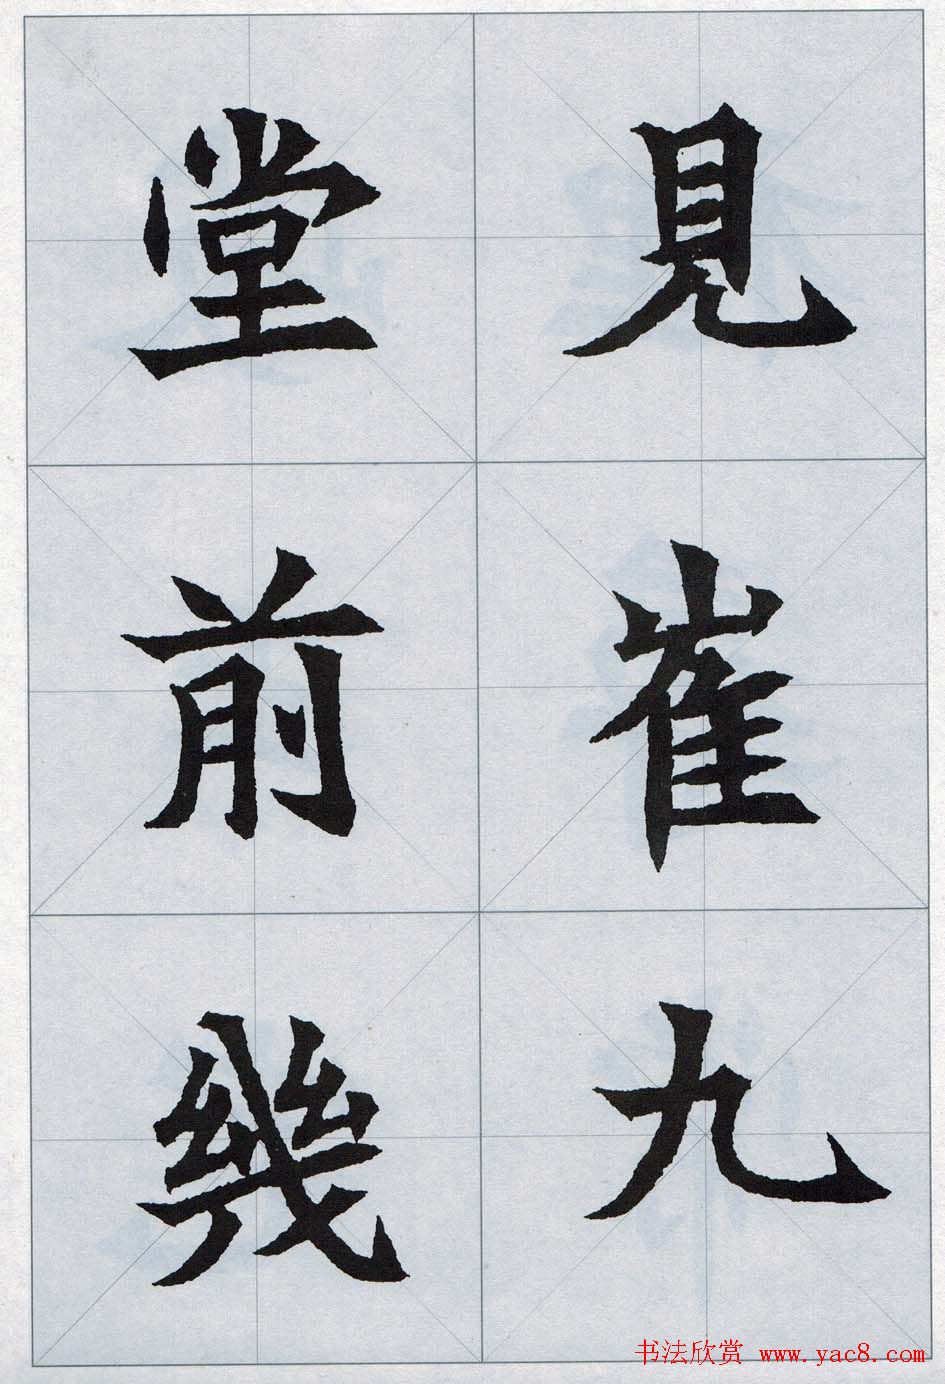 見崔九
堂前幾
书法欣赏 www.yac8.com